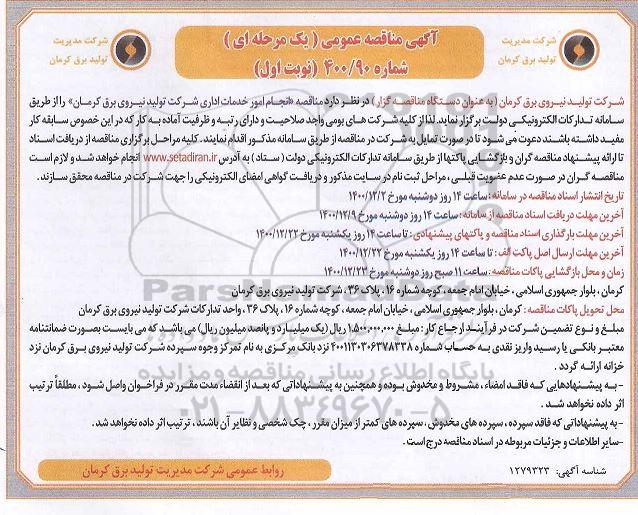 شرکت مدیریت
تولید برق کرمان
آگهی مناقصه عمومی ( یک مرحله ای )
شماره ۴۰۰/۹۰ (نوبت اول)
شرکت مدیریت
تولید برق کرمان
شرکت تولید نیروی برق کرمان ( به عنوان دستگاه مناقصه گزار ) در نظر دارد مناقصه «انجام امور خدمات اداری شرکت تولید نیروی برق کرمان» را از طریق
سامانه تدارکات الکترونیکی دولت برگزار نماید. لذا از کلیه شرکت های بومی واجد صلاحیت و دارای رتبه و ظرفیت آماده به کار که در این خصوص سابقه کار
مفید داشته باشند دعوت می شود تا در صورت تمایل به شرکت در مناقصه از طریق سامانه مذکور اقدام نمایند. کلیه مراحل برگزاری مناقصه از دریافت اسناد
تا ارائه پیشنهاد مناقصه گران و بازگشایی پاکتها از طریق سامانه تدارکات الکترونیکی دولت ( ستاد ) به آدرس www.setadiran.ir انجام خواهد شد و لازم است
مناقصه گران در صورت عدم عضویت قبلی ، مراحل ثبت نام در سایت مذکور و دریافت گواهی امضای الکترونیکی را جهت شرکت در مناقصه محقق سازند.
تاریخ انتشار اسناد مناقصه در سامانه : ساعت ۱۴ روز دوشنبه مورخ ۱۴۰۰/۱۲/۲
آخرین مهلت دریافت اسناد مناقصه از سامانه : ساعت ۱۴ روز دوشنبه مورخ ۱۴۰۰/۱۲/۹
آخرین مهلت بارگذاری اسناد مناقصه و پاکتهای پیشنهادی : تا ساعت ۱۴ روز یکشنبه مورخ ۱۴۰۰/۱۲/۲۲
آخرین مهلت ارسال اصل پاکت الف : تا ساعت ۱۴ روز یکشنبه مورخ ۱۴۰۰/۱۲/۲۲
زمان و محل بازگشایی پاکات مناقصه: ساعت ۱۱ صبح روز دوشنبه مورخ ۱۴۰۰/۱۲/۲۳
کرمان ، بلوار جمهوری اسلامی ، خیابان امام جمعه ، کوچه شماره ۱۶ ، پلاک ۳۶ ، شرکت تولید نیروی برق کرمان
محل تحویل پاکات مناقصه : کرمان ، بلوار جمهوری اسلامی ، خیابان امام جمعه ، کوچه شماره ۱۶ ، پلاک ۳۶ ، واحد تدارکات شرکت تولید نیروی برق کرمان
مبلغ و نوع تضمین شرکت در فرآیند ارجاع کار : مبلغ ۱,۵۰۰,۰۰۰,۰۰۰ ریال (یک میلیارد و پانصد میلیون ریال) می باشد که می بایست بصورت ضمانتنامه
معتبر بانکی یا رسید واریز نقدی به حساب شماره ۴۰۰۱۱۳۰۳۰۶۳۷۸۳۳۸ نزد بانک مرکزی به نام تمرکز وجوه سپرده شرکت تولید نیروی برق کرمان نزد
خزانه ارائه گردد .
- به پیشنهادهایی که فاقد امضاء ، مشروط و مخدوش بوده و همچنین به پیشنهاداتی که بعد از انقضاء مدت مقرر در فراخوان واصل شود ، مطلقاً ترتیب
اثر داده نخواهد شد .
- به پیشنهاداتی که فاقد سپرده ، سپرده های مخدوش ، سپرده های کمتر از میزان مقرر ، چک شخصی و نظایر آن باشند ، ترتیب اثر داده نخواهد شد.
-سایر اطلاعات و جزئیات مربوطه در اسناد مناقصه درج است .
پایگاه اطلاع رسانی مناقصه و مزایده
۰۲۱-۸۸۳۴۹۶۷۰-۵
شناسه آگهی: ۱۲۷۹۳۲۳
روابط عمومی شرکت مدیریت تولید برق کرمان